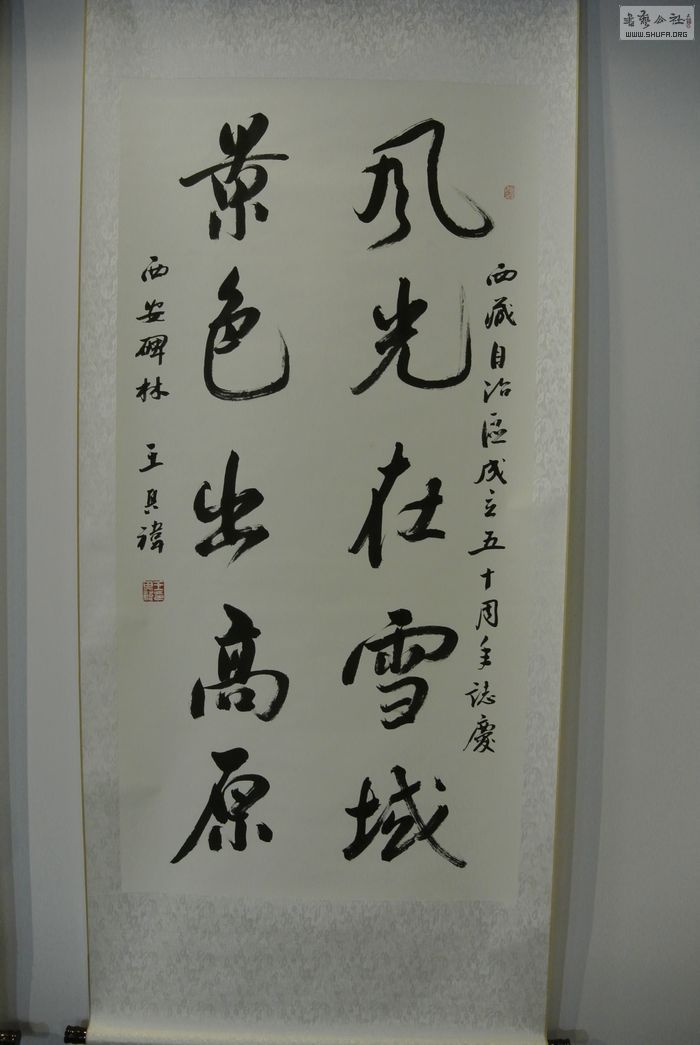 西藏自治區成立五十周年誌慶
風光在雪域
景色出高原
西安碑林 王具禕
書藝公社
WWW.SHUFA.ORG